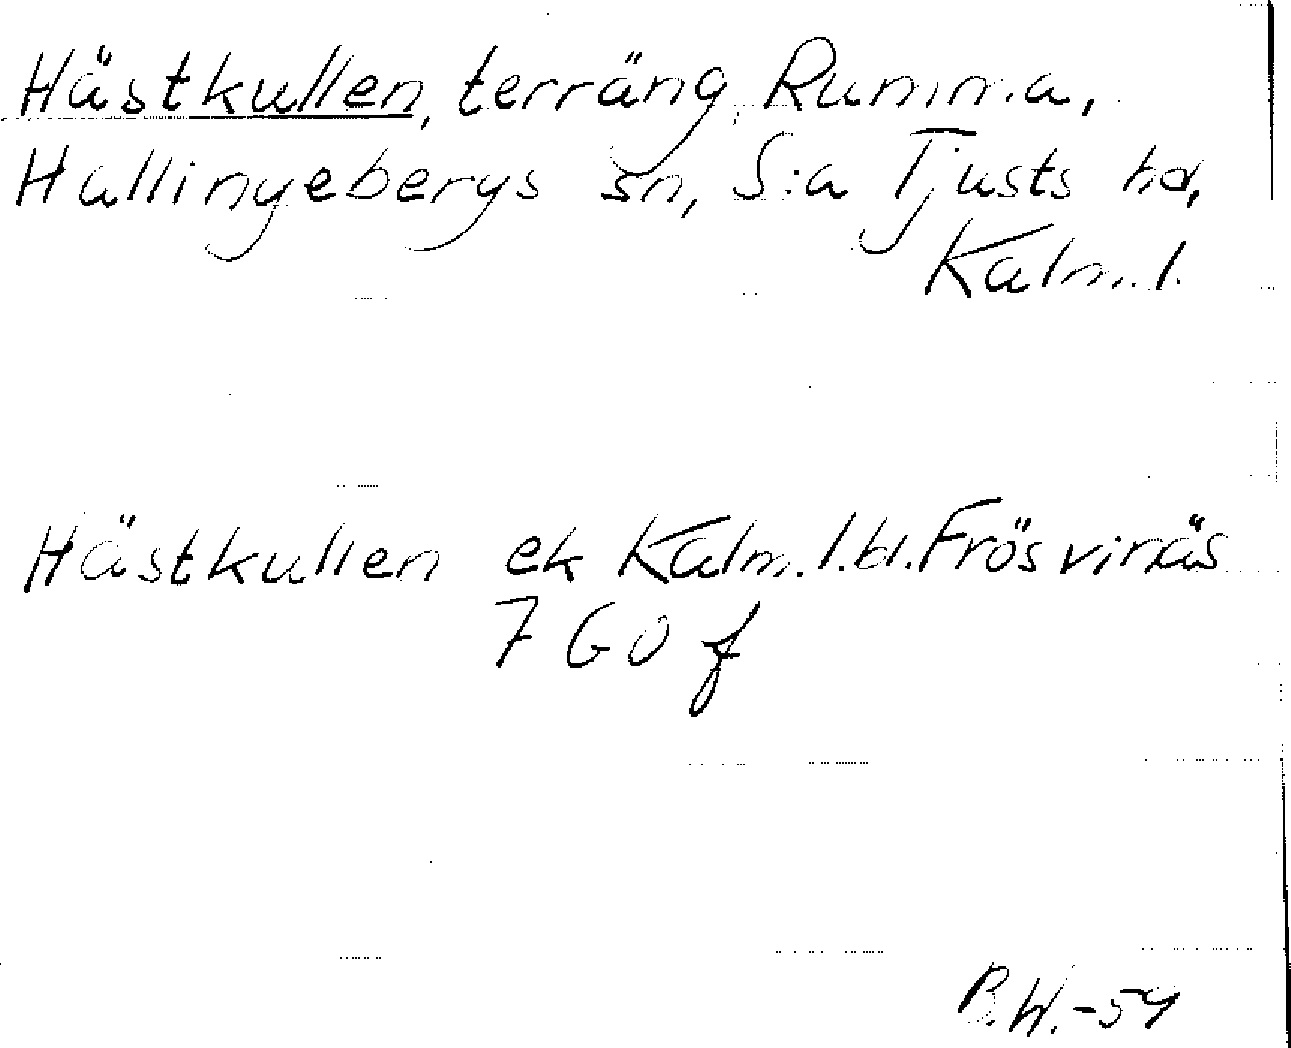 Hästkullen, terräng Rumma,
Hallingebergs sn, S:a Tjusts hd,
Kalm.l.
Hästkullen ek Kalm.l.bl. Frösvinäs
7 G 0 f
B.W.-54